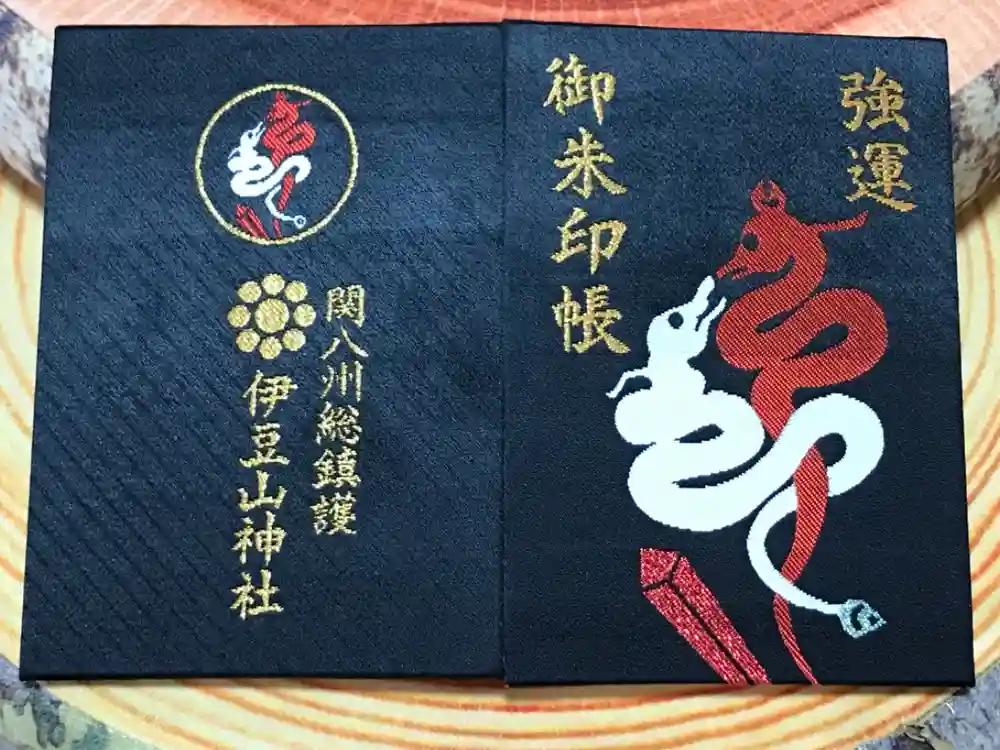 強運
御朱印帳
関八州総鎮護
伊豆山神社